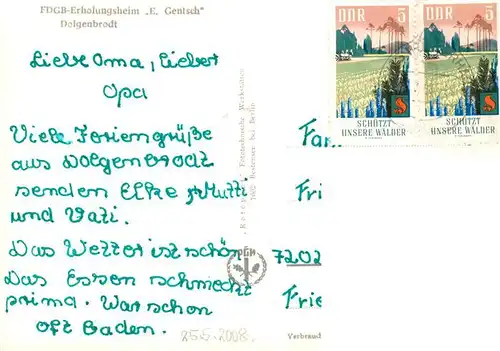 FDGB-Erholungsheim „E. Gentsch"
Dolgenbrodt
Liebe Oma, Lieber
Opa
Viele Feriengrüße
aus Dolgenbrodt
senden Elke, Mutti
und Vati.
Das Wetter ist schön
Das Essen schmeckt
prima. War schon
oft baden.
25.5.2008.
Fototechnische Werkstätten
1600 Bestensee bei Berlin
PGH
DDR 5
SCHÜTZT
UNSERE WÄLDER
DDR 5
SCHÜTZT
UNSERE WÄLDER
Fa
Fri
7202
Frie
Verbrauch